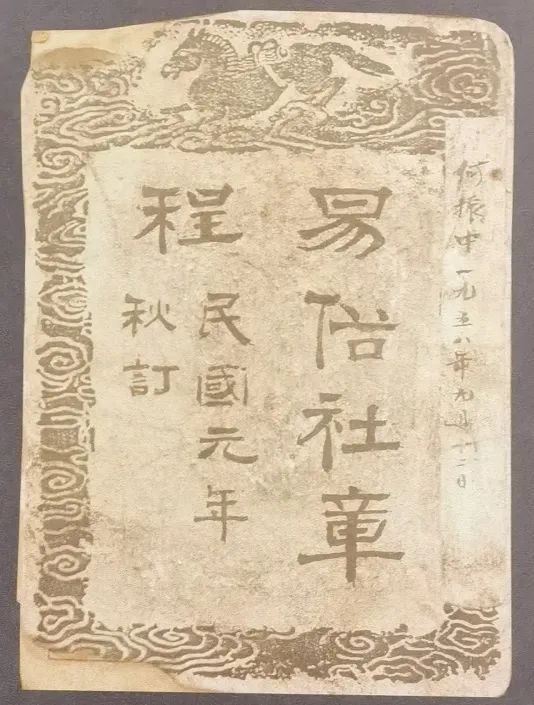 何振中一九五八年九月十二日
易俗社章
程
民國元年
秋訂